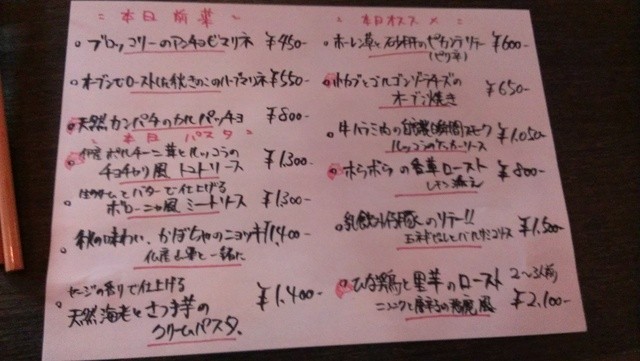 本日前菜
ブロッコリーのアンチョビマリネ ¥450-
オーブンでローストした秋きのこのハーブマリネ ¥550-
天然カンパチのカルパッチョ ¥800-
本日パスタ
伊産ポルチーニ茸とルッコラの
トマトソース ¥1,300-
生クリームとバターで仕上げる
ボローニャ風ミートソース ¥1300-
秋の味わい、かぼちゃのニョッキ ¥1,400-
仏産
と一緒に
セージの香りで仕上げる
天然海老とさつま芋の
クリームパスタ ¥1,400-
本日オススメ
ホーレン草と砂肝の ¥600-
とゴルゴンゾーラチーズの
オーブン焼き ¥650-
牛ハラミ肉の瞬間スモーク
ルッコラの ソース ¥1,050-
ホウボウの香草ロースト
レモン添え ¥800-
乳飲み仔豚のソテー!!
¥1,500-
ひな鶏と里芋のロースト 2〜3人前
ニンニクと唐辛子の 風 ¥2,100-